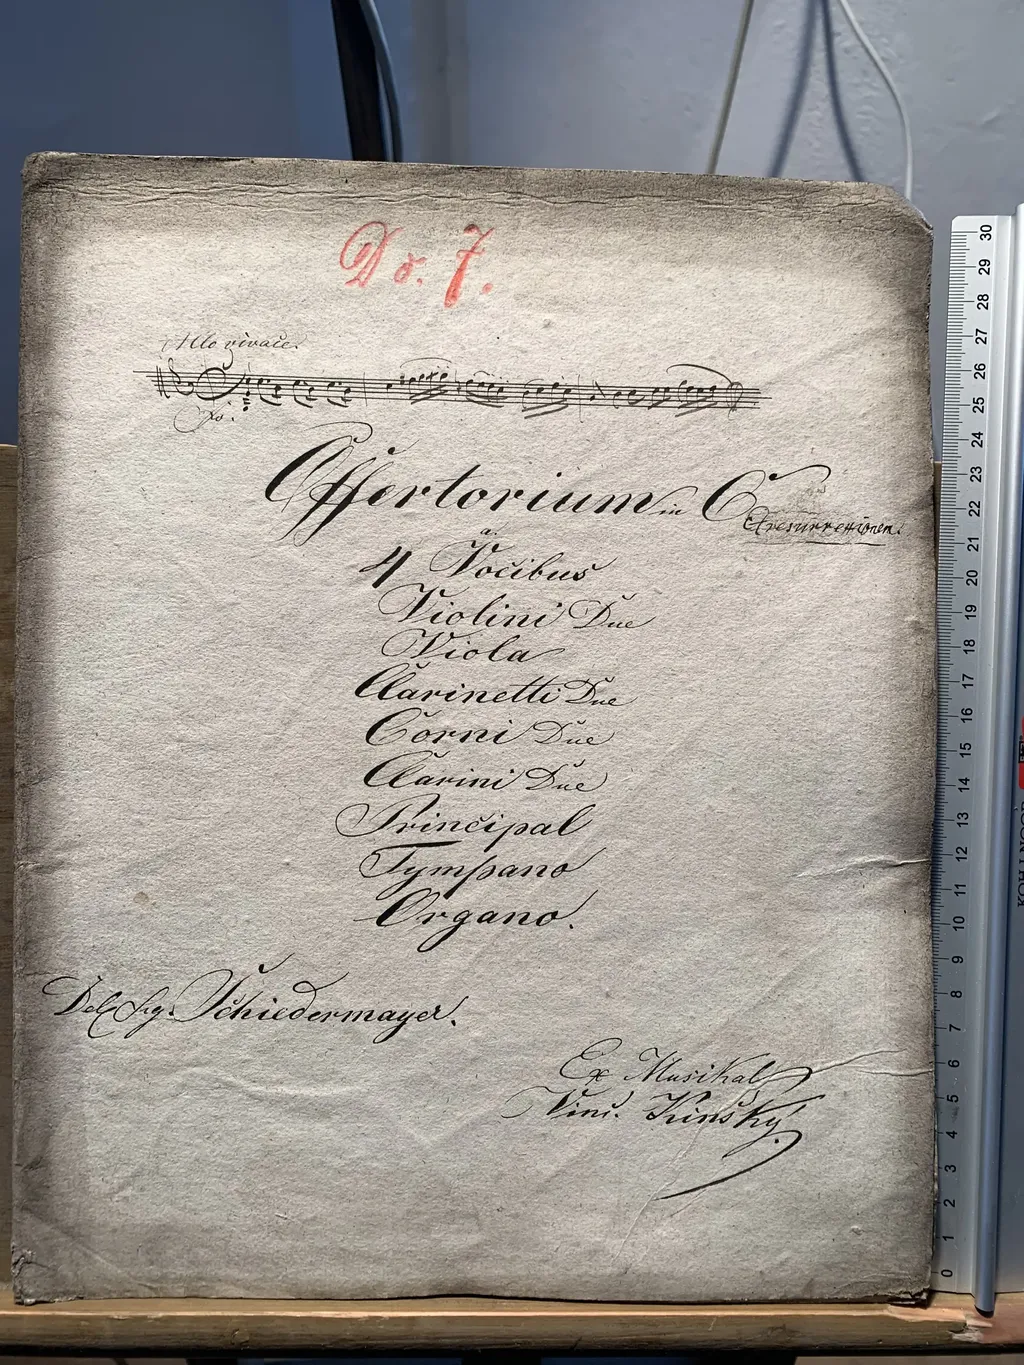 No. 7.
Allo vivace.
Offertorium in C
ad resurrectionem.
a.
4 Vocibus
Violini Due
Viola
Clarinetti Due
Corni Due
Clarini Due
Principal
Tympano
Organo.
Del Sig. Schiedermayer.
Ex Musikal
Vinc. Kinský
30
29
28
27
26
25
24
23
22
21
20
19
18
17
16
15
14
13
12
11
10
9
8
7
6
5
4
3
2
1
0